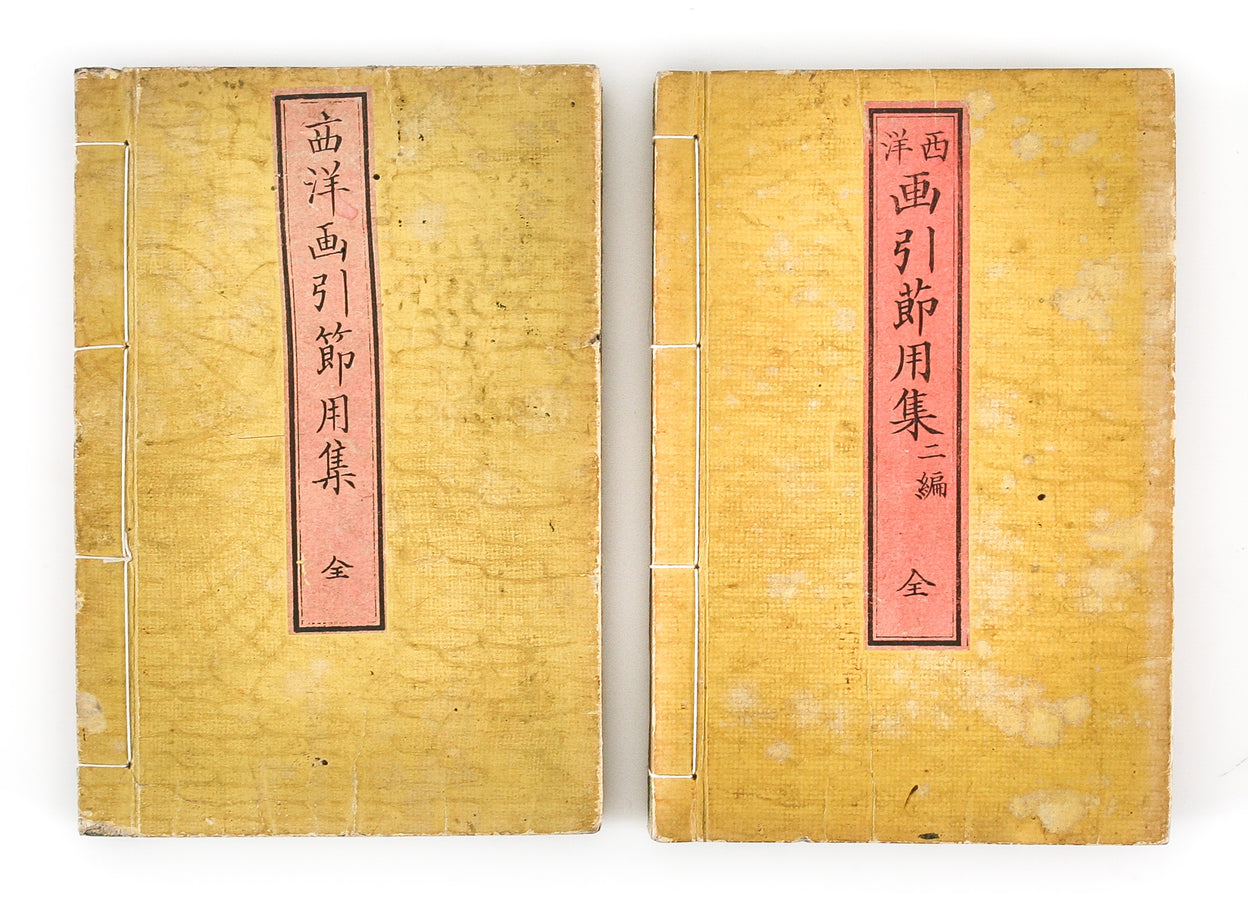 西洋画引節用集
全
西洋
画引節用集
二編
全